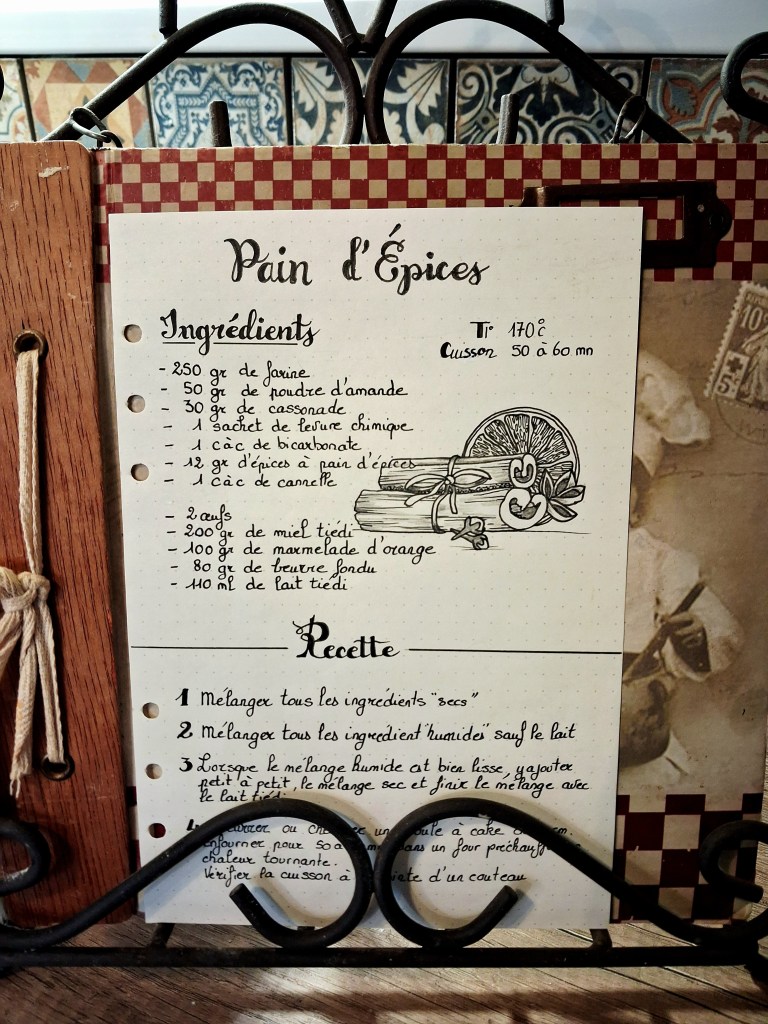 Pain d'Épices
Ingrédients
T° 170°c
Cuisson 50 à 60 mn
- 250 gr de farine
- 50 gr de poudre d'amande
- 30 gr de cassonade
- 1 sachet de levure chimique
- 1 càc de bicarbonate
- 12 gr d'épices à pain d'épices
- 1 càc de cannelle
- 2 œufs
- 200 gr de miel tiédi
- 100 gr de marmelade d'orange
- 80 gr de beurre fondu
- 110 ml de lait tiédi
Recette
1 Mélanger tous les ingrédients "secs"
2 Mélanger tous les ingrédient "humides" sauf le lait
3 Lorsque le mélange humide est bien lisse, y ajouter
petit à petit, le mélange sec et finir le mélange avec
le lait tiédi
ou un à cake
enfourner pour 50 à dans un four
chaleur tournante.
Vérifier la cuisson à d'un couteau
10c
5c